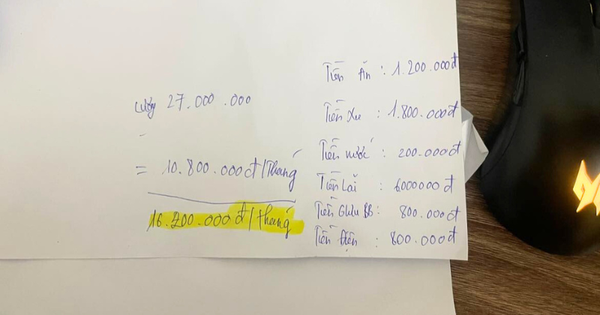 Lương 27.000.000
-
= 10.800.000đ/Tháng
16.200.000đ/tháng
Tiền ăn : 1.200.000đ
Tiền xe : 1.800.000đ
Tiền nước : 200.000đ
Tiền Lãi : 6000000đ
Tiền : 800.000đ
Tiền Điện : 800.000đ